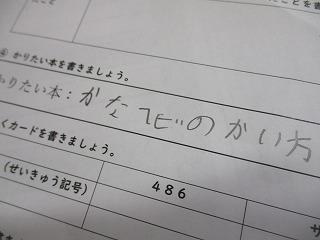 ④ かりたい本を書きましょう。
かりたい本：かなヘビのかい方
くカードを書きましょう。
(せいきゅう記号)
486